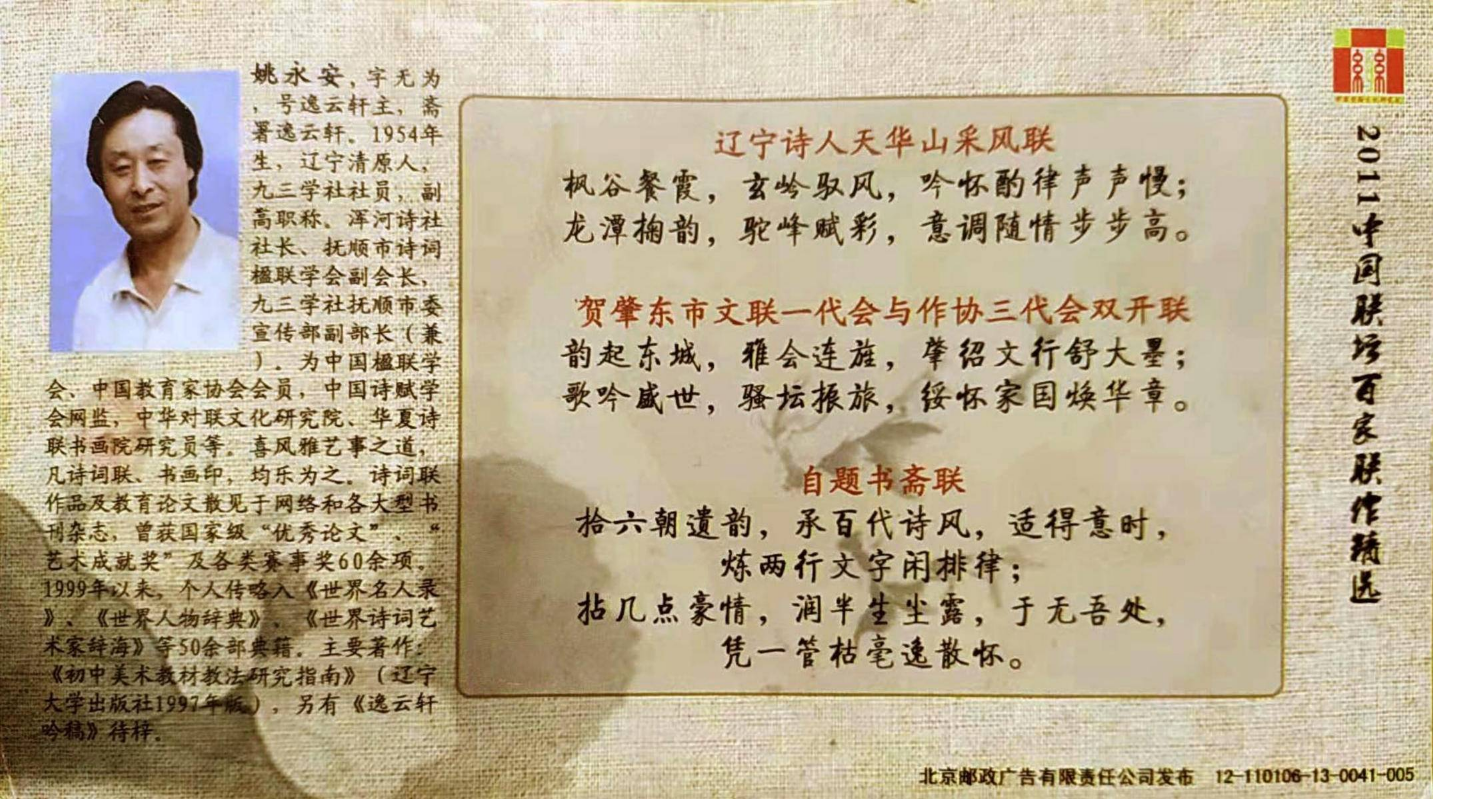 姚永安，字无为
，号逸云轩主，斋
署逸云轩。1954年
生，辽宁清原人，
九三学社社员，副
高职称。浑河诗社
社长、抚顺市诗词
楹联学会副会长，
九三学社抚顺市委
宣传部副部长（兼
）。为中国楹联学
会、中国教育家协会会员，中国诗赋学
会网监，中华对联文化研究院、华夏诗
联书画院研究员等。喜风雅艺事之道，
凡诗词联、书画印，均乐为之。诗词联
作品及教育论文散见于网络和各大型书
刊杂志，曾获国家级“优秀论文”、“
艺术成就奖”及各类赛事奖60余项。
1999年以来，个人传略入《世界名人录
》、《世界人物辞典》、《世界诗词艺
术家辞海》等50余部典籍。主要著作：
《初中美术教材教法研究指南》（辽宁
大学出版社1997年版），另有《逸云轩
吟稿》待梓。
辽宁诗人天华山采风联
枫谷餐霞，玄岭驭风，吟怀酌律声声慢；
龙潭掬韵，驼峰赋彩，意调随情步步高。
贺肇东市文联一代会与作协三代会双开联
韵起东城，雅会连旌，肇绍文行舒大墨；
歌吟盛世，骚坛振旅，绥怀家国焕华章。
自题书斋联
拾六朝遗韵，承百代诗风，适得意时，
炼两行文字闲排律；
拈几点豪情，润半生尘露，于无吾处，
凭一管枯毫逸散怀。
2011中国联坛百家联作精选
北京邮政广告有限责任公司发布 12-110106-13-0041-005